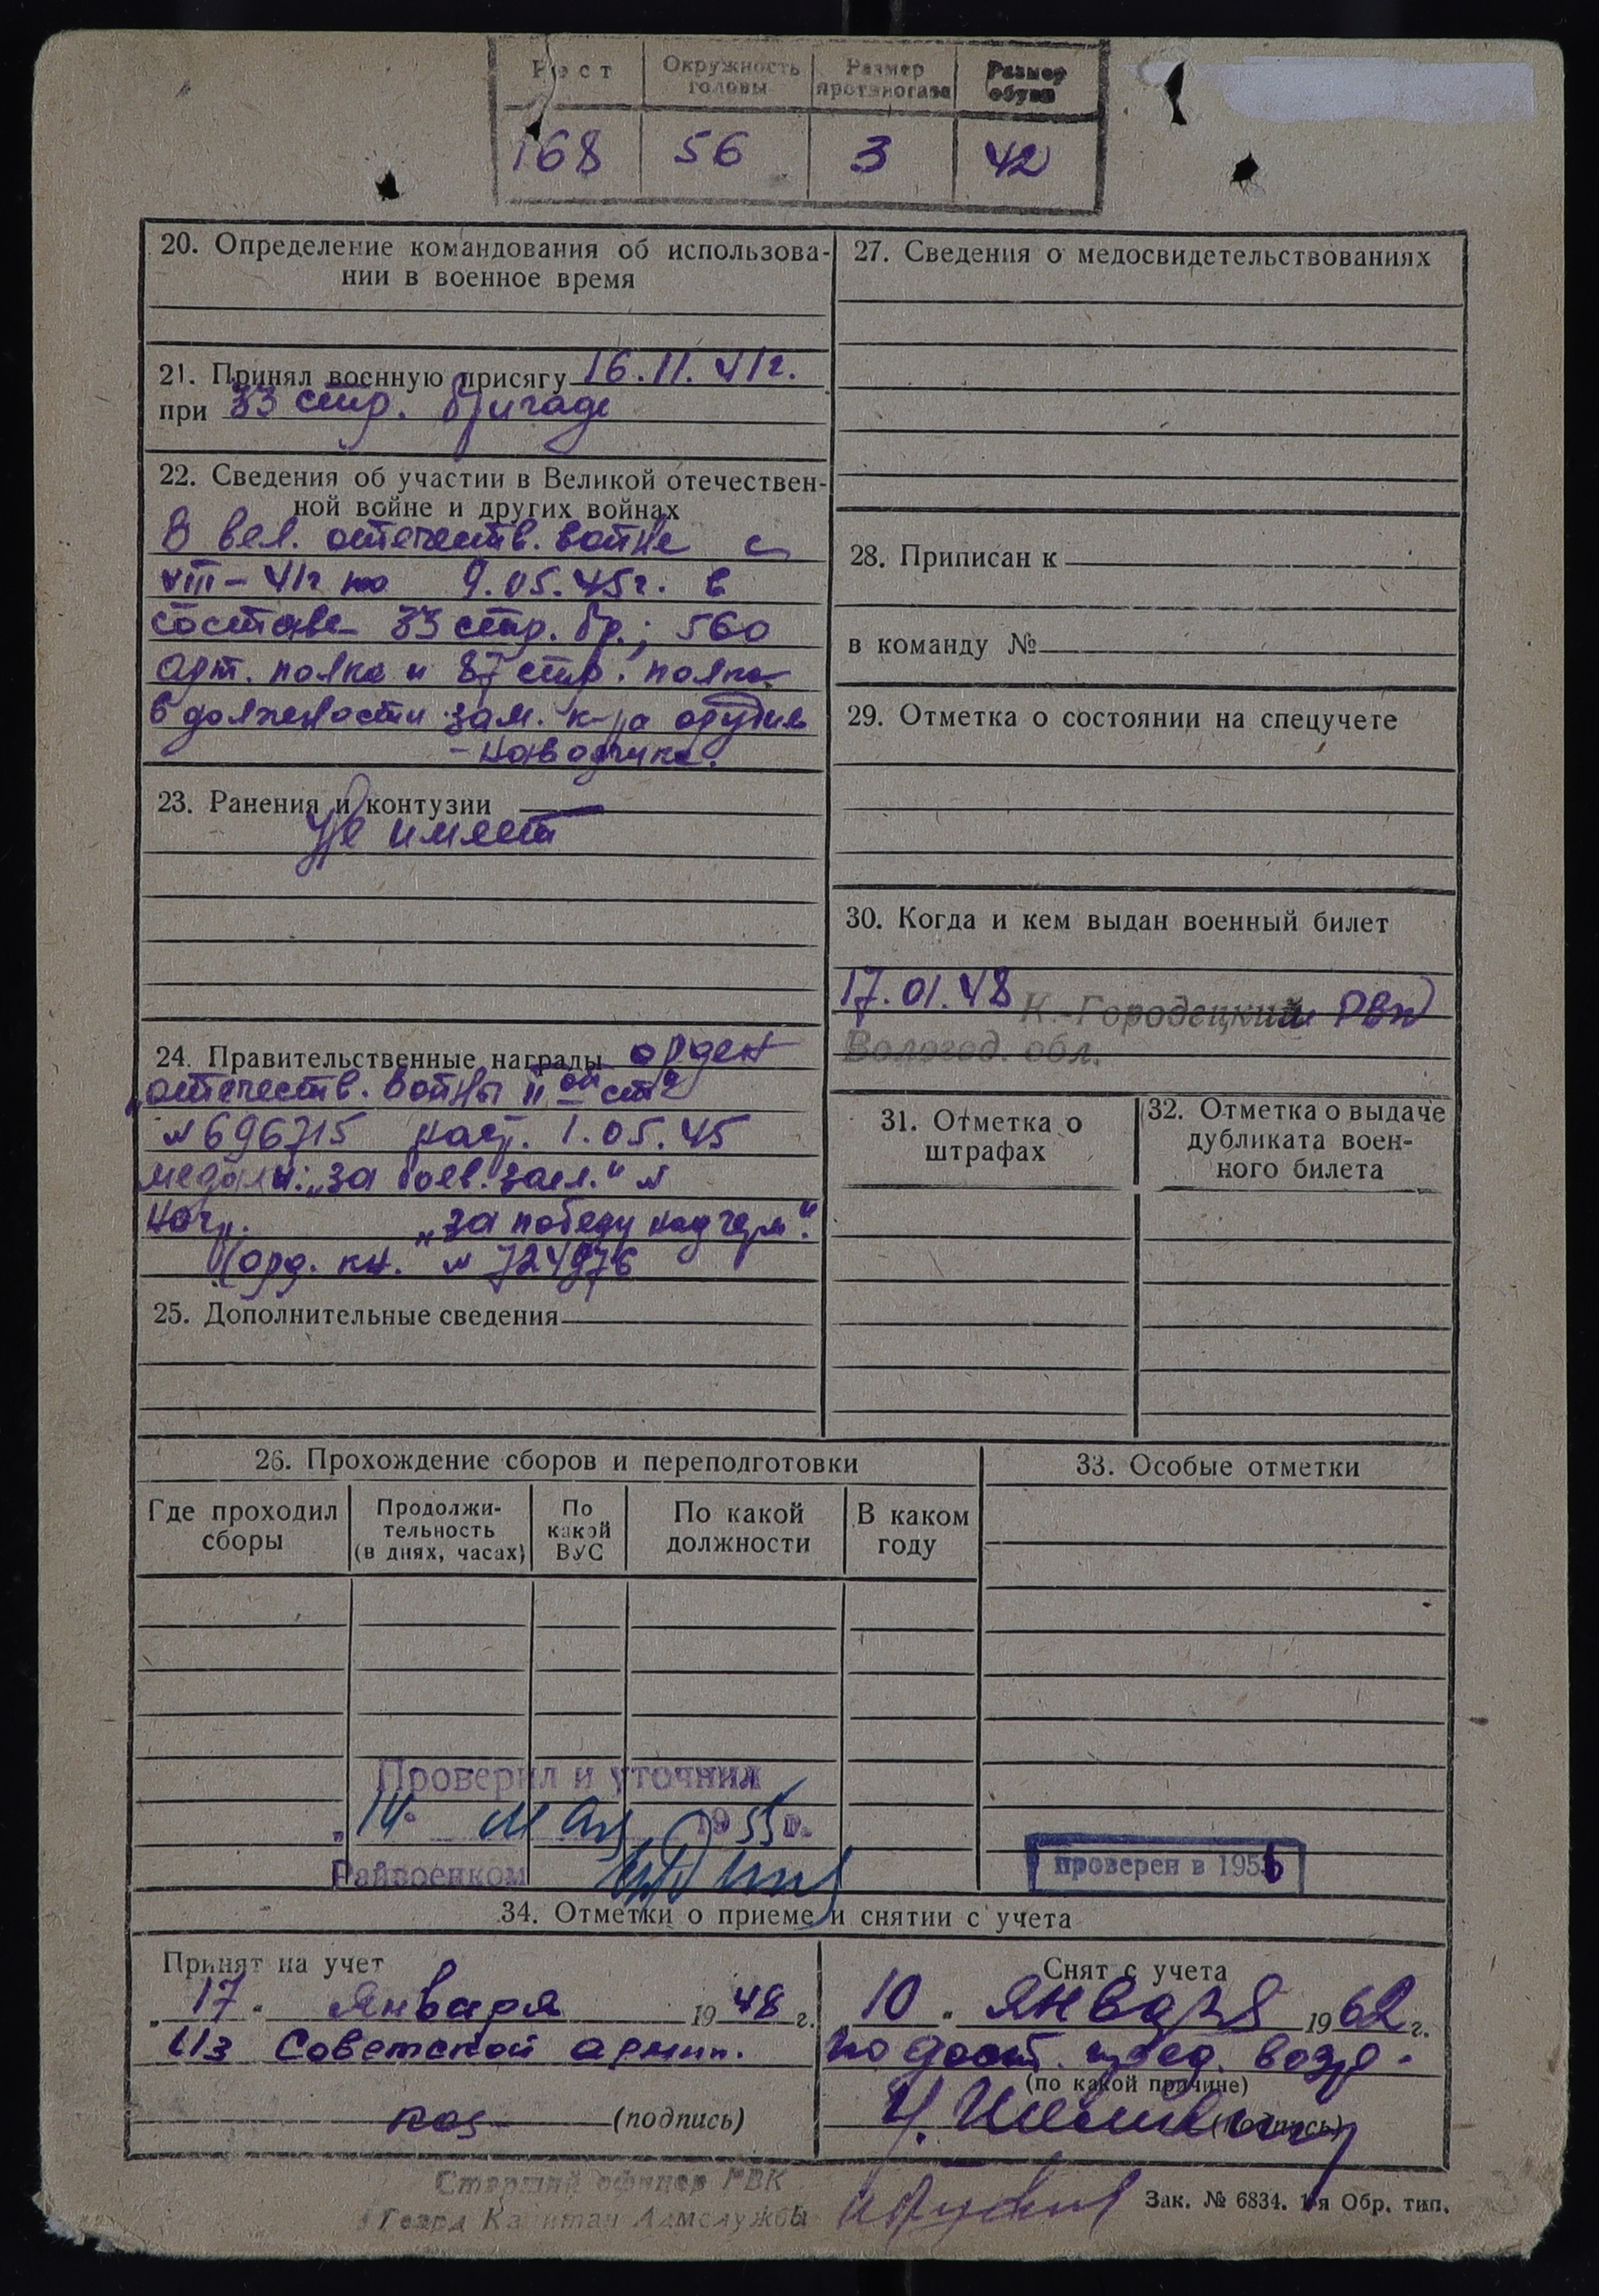 Рост Окружность головы Размер противогаза Размер обуви
168 56 3 42
20. Определение командования об использова-
нии в военное время
21. Принял военную присягу 16.11.41г.
при 33 стр. бригаде
22. Сведения об участии в Великой отечествен-
ной войне и других войнах
В вел. отечеств. войне с
VIII-41г по 9.05.45г. в
составе 33 стр. бр.; 560
арт. полка и 87 стр. полка
в должности зам. к-ра орудия
- наводчика.
23. Ранения и контузии
Не имеет
24. Правительственные награды орден
„отечеств. войны II ой ст"
№ 696715 наг. 1.05.45
медали: „за боев. засл." №
наг. „за победу над герм".
орд. кн. № 724976
25. Дополнительные сведения
27. Сведения о медосвидетельствованиях
28. Приписан к
в команду №
29. Отметка о состоянии на спецучете
30. Когда и кем выдан военный билет
17.01.48 К.-Городецким РВК
Вологод. обл.
31. Отметка о
штрафах
32. Отметка о выдаче
дубликата воен-
ного билета
26. Прохождение сборов и переподготовки
Где проходил
сборы
Продолжи-
тельность
(в днях, часах)
По
какой
ВУС
По какой
должности
В каком
году
33. Особые отметки
Проверил и уточнил
„14" мая 1955 г.
Райвоенком
проверен в 1956
34. Отметки о приеме и снятии с учета
Принят на учет
„17" Января 1948 г.
Из Советской армии.
(подпись)
Снят с учета
„10" января 1962 г.
по дост. пред. возр.
(по какой причине)
(подпись)
Старший офицер РВК
Гвард Капитан Адмслужбы
Зак. № 6834. 1-я Обр. тип.